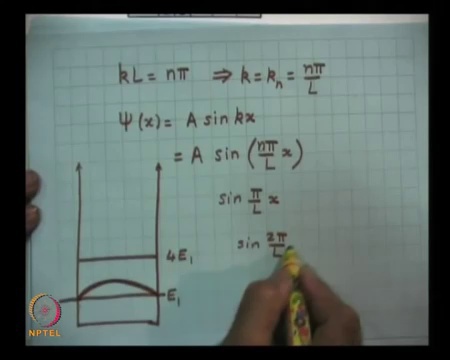 kL = nπ ⇒ k = kₙ = nπ/L
Ψ(x) = A sin kx
= A sin (nπ/L x)
sin π/L x
sin 2π/L
4E₁
E₁
NPTEL